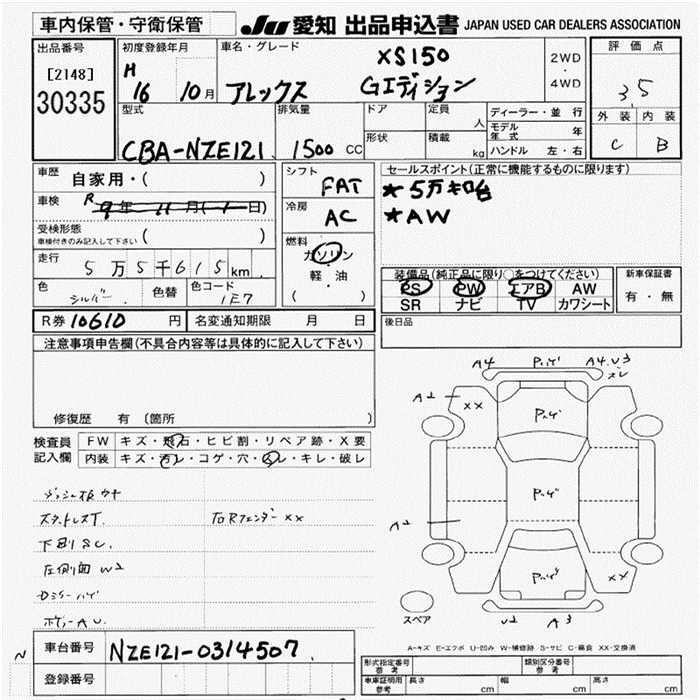 車内保管・守衛保管
JU 愛知 出品申込書 JAPAN USED CAR DEALERS ASSOCIATION
出品番号
[2148]
30335
初度登録年月
H 16 10月
車名・グレード
アレックス
XS150
Gエディション
2WD
・
4WD
評価点
3.5
外装 内装
C B
型式
CBA-NZE121
排気量
1500 CC
ドア
形状
定員
人
積載
kg
ディーラー・並行
モデル年式 年
ハンドル 左・右
車歴 自家用・( )
車検 R 9年 11月( 1日)
受検形態
車検付きのみ記入して下さい ( )
走行 5万5千615km
色 シルバー
色替
色コード 1E7
シフト FAT
冷房 AC
燃料
ガソリン
軽・油
( )
セールスポイント(正常に機能するものに限ります)
★5万キロ台
★AW
装備品(純正品に限り○をつけてください)
PS PW エアB AW
SR ナビ TV カワシート
新車保証書
有・無
後日品
R券 10610 円 名変通知期限 月 日
注意事項申告欄(不具合内容等は具体的に記入して下さい)
修復歴 有 (箇所 )
検査員
記入欄
FW キズ・飛石・ヒビ割・リペア跡・X要
内装 キズ・汚レ・コゲ・穴・スレ・キレ・破レ
スタットレスT.
右Rフェンダー XX
下回りSC.
左側面 W2
ボディーAU
A4 A4.U3
スレ
A2 XX
A2
XX
U2 A3
スペア
A-キズ E-エクボ U-凹み W-補修跡 S-サビ C-腐食 XX-交換済
N
車台番号 NZE121-0314507
登録番号
形式指定番号
参考
類別区分番号
参考
車庫証明用
参考
長さ cm 幅 cm 高さ cm